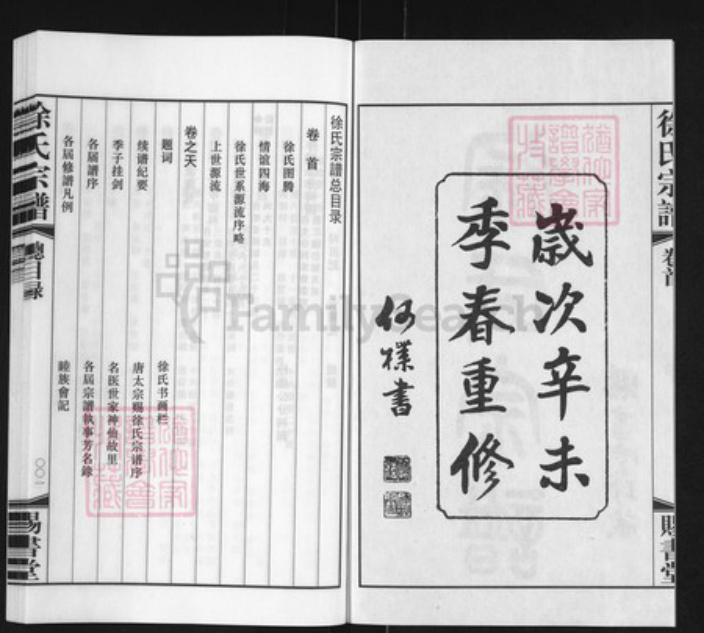 徐氏宗譜
卷首
賜書堂
歲次辛未
季春重修
何樸書
徐氏宗譜总目录
卷首
徐氏图腾
情谊四海
徐氏世系源流序略
上世源流
卷之天
题词
徐氏书画栏
续谱纪要
唐太宗赐徐氏宗谱序
季子挂剑
名医世家神仙故里
各屆譜序
各屆宗譜執事芳名錄
各屆修譜凡例
睦族會記
徐氏宗譜
總目録
〇〇一
賜書堂
FamilySearch